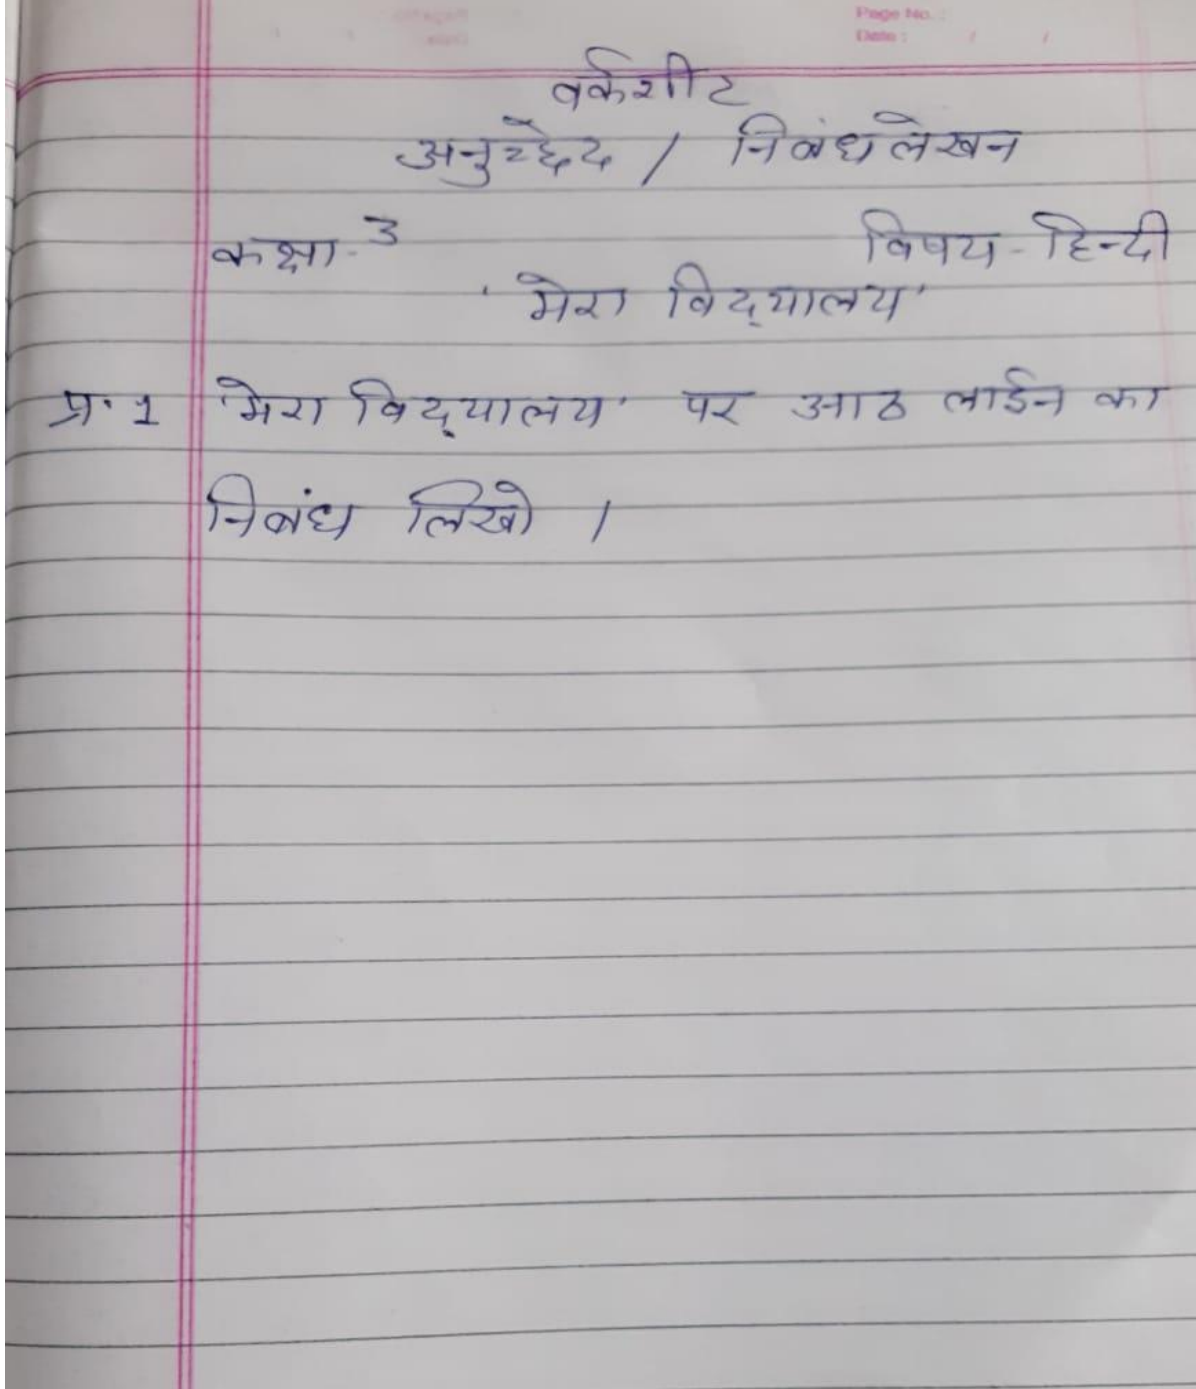 Page No. :
Date : / /
वर्कशीट
अनुच्छेद / निबंध लेखन
कक्षा - 3 विषय - हिन्दी
'मेरा विद्‌यालय'
प्र. 1 'मेरा विद्‌यालय' पर आठ लाईन का
निबंध लिखो ।